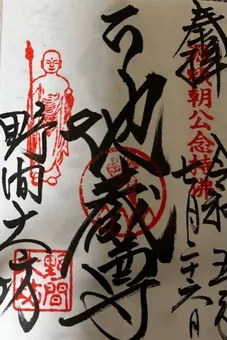 奉拝
朝公念持佛
令和五年
月二十六日
地蔵尊
野間大坊
野間
大坊